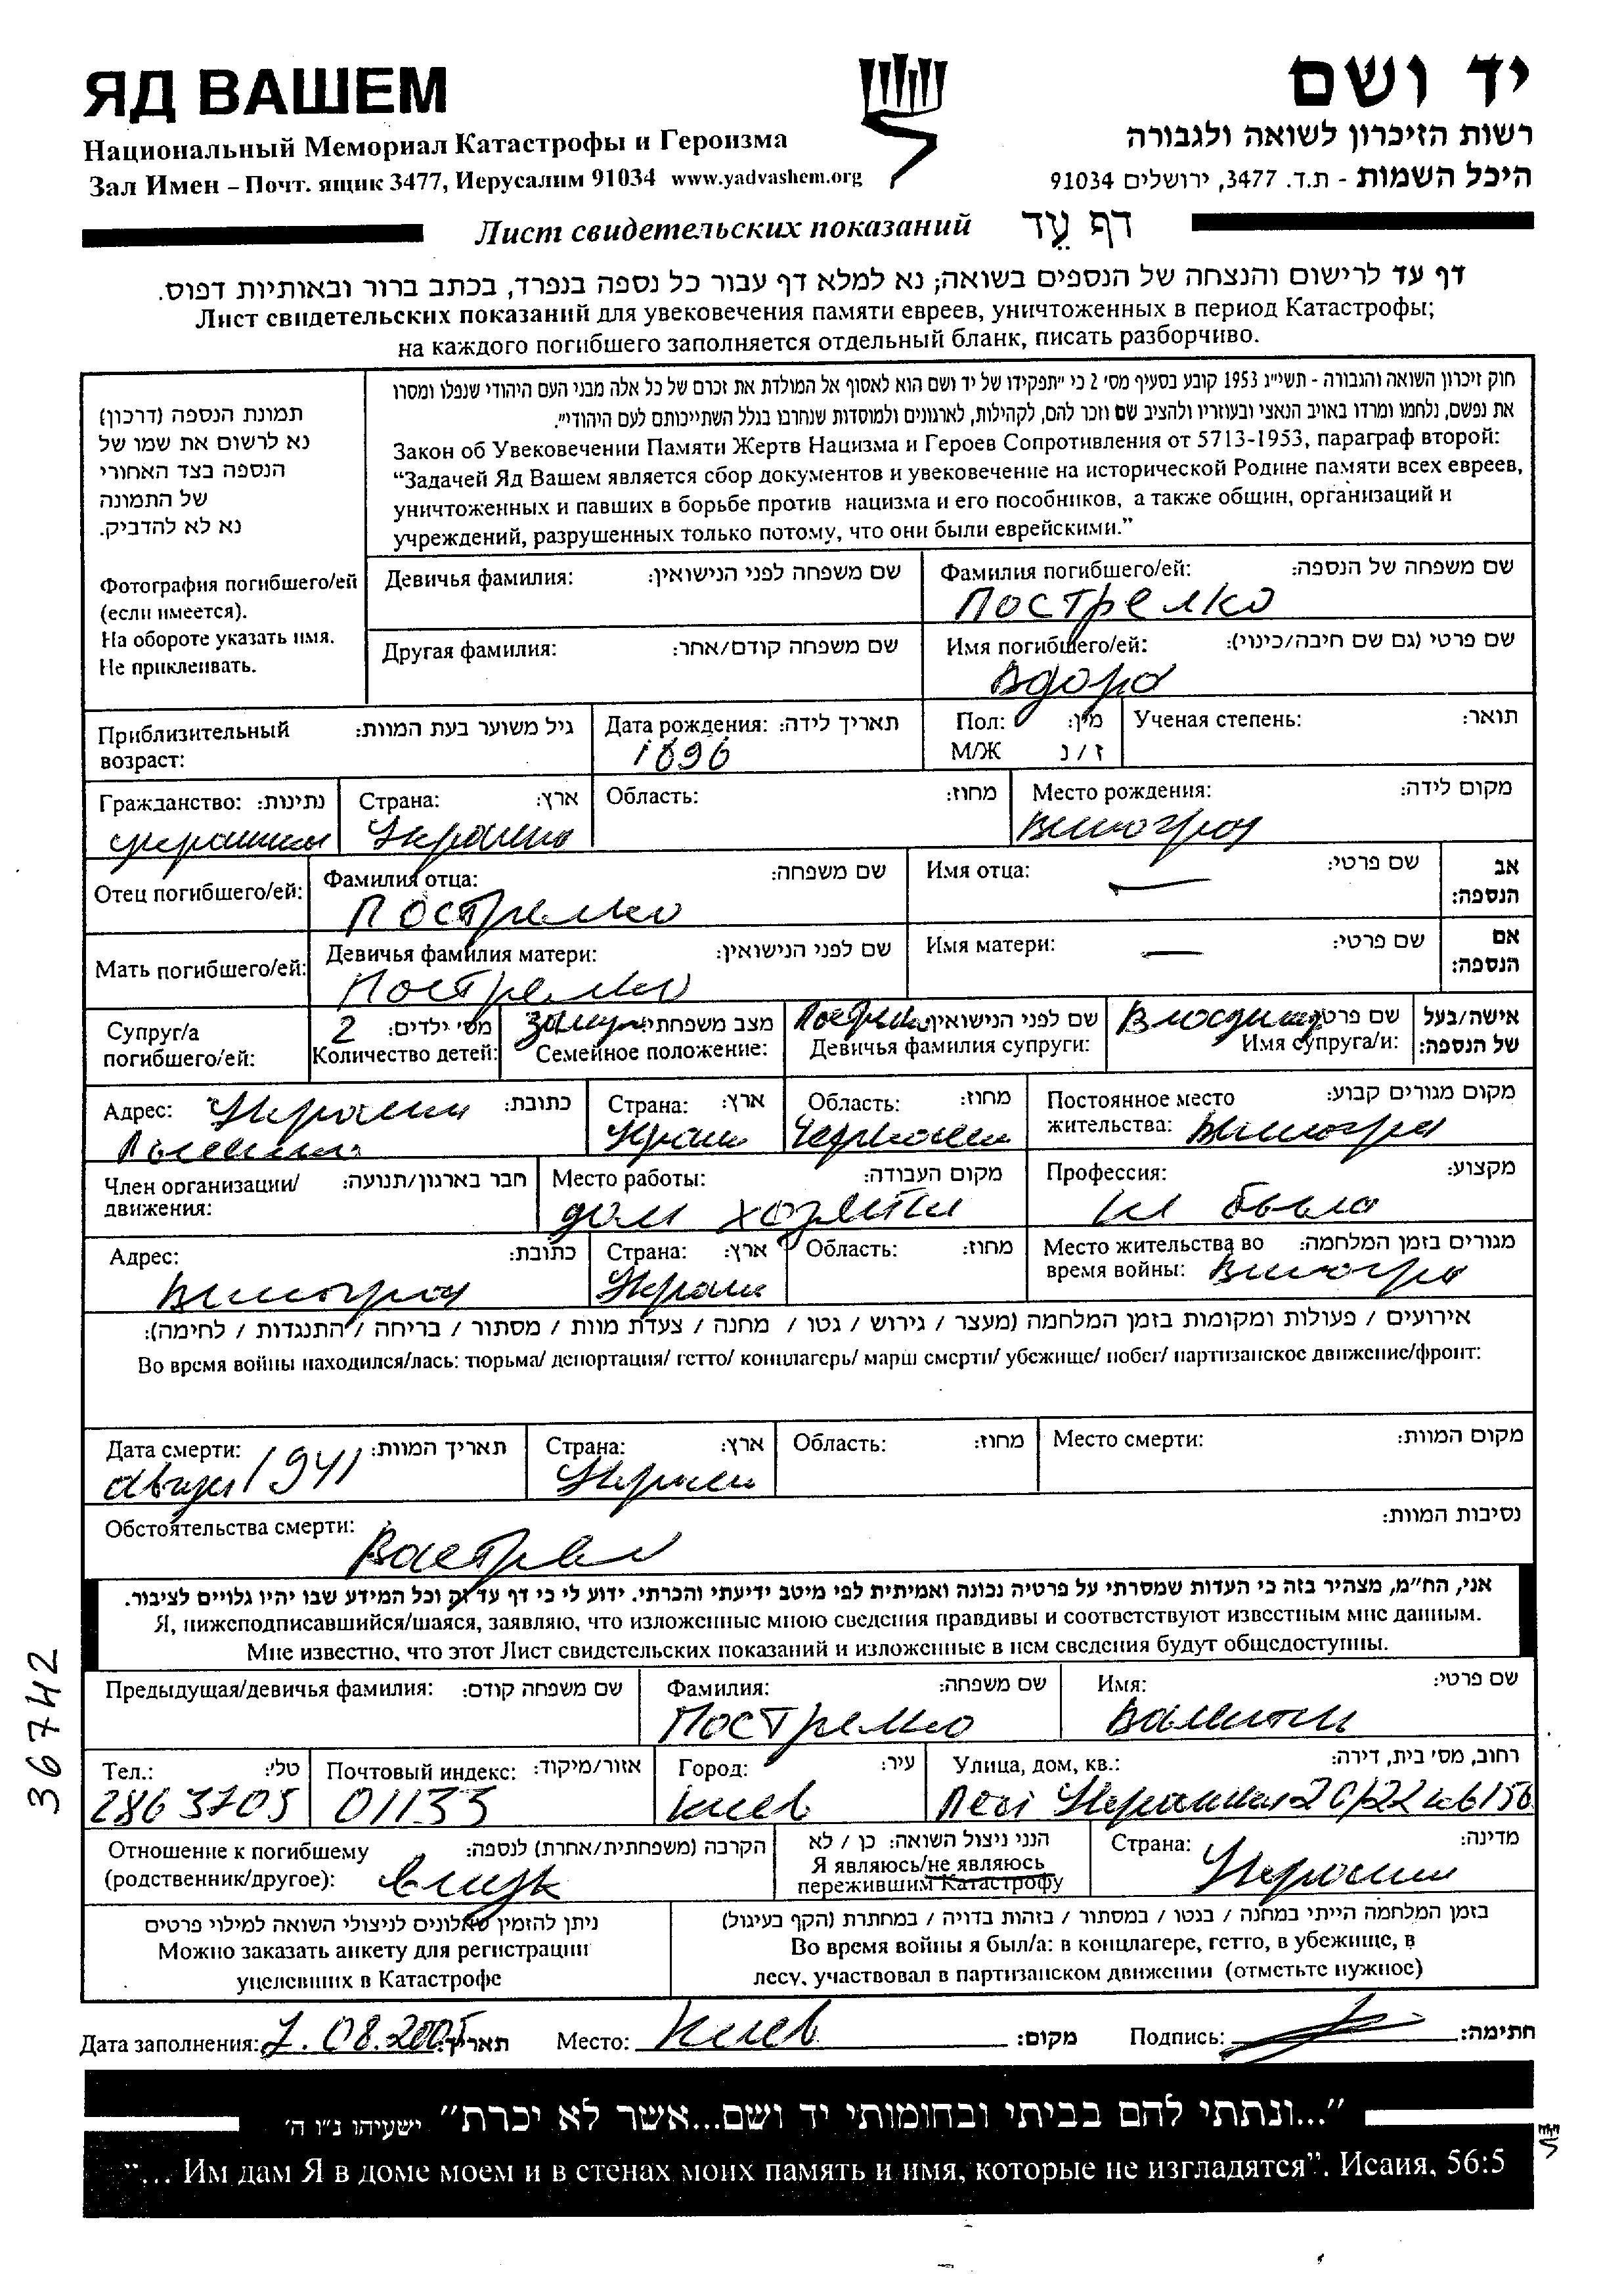 ЯД ВАШЕМ
יד ושם
Национальный Мемориал Катастрофы и Героизма
רשות הזיכרון לשואה ולגבורה
Зал Имен – Почт. ящик 3477, Иерусалим 91034 www.yadvashem.org
היכל השמות - ת.ד. 3477, ירושלים 91034
Лист свидетельских показаний דף עֵד
דף עד לרישום והנצחה של הנספים בשואה; נא למלא דף עבור כל נספה בנפרד, בכתב ברור ובאותיות דפוס.
Лист свидетельских показаний для увековечения памяти евреев, уничтоженных в период Катастрофы;
на каждого погибшего заполняется отдельный бланк, писать разборчиво.
תמונת הנספה (דרכון)
נא לרשום את שמו של
הנספה בצד האחורי
של התמונה
נא לא להדביק.
Фотография погибшего/ей
(если имеется).
На обороте указать имя.
Не приклеивать.
חוק זיכרון השואה והגבורה - תשי"ג 1953 קובע בסעיף מס' 2 כי "תפקידו של יד ושם הוא לאסוף אל המולדת את זכרם של כל אלה מבני העם היהודי שנפלו ומסרו
את נפשם, נלחמו ומרדו באויב הנאצי ובעוזריו ולהציב שם וזכר להם, לקהילות, לארגונים ולמוסדות שנחרבו בגלל השתייכותם לעם היהודי".
Закон об Увековечении Памяти Жертв Нацизма и Героев Сопротивления от 5713-1953, параграф второй:
“Задачей Яд Вашем является сбор документов и увековечение на исторической Родине памяти всех евреев,
уничтоженных и павших в борьбе против нацизма и его пособников, а также общин, организаций и
учреждений, разрушенных только потому, что они были еврейскими.”
Девичья фамилия: שם משפחה לפני הנישואין:
Фамилия погибшего/ей: שם משפחה של הנספה:
Пострелко
Другая фамилия: שם משפחה קודם/אחר:
Имя погибшего/ей: שם פרטי (גם שם חיבה/כינוי):
Приблизительный возраст: גיל משוער בעת המוות:
Дата рождения: תאריך לידה:
1896
Пол: מין:
М/Ж ז / נ
Ученая степень: תואר:
Гражданство: נתינות:
Страна: ארץ:
Украина
Область: מחוז:
Место рождения: מקום לידה:
Виноград
Отец погибшего/ей:
Фамилия отца: שם משפחה:
Пострелко
Имя отца: שם פרטי:
—
אב הנספה:
Мать погибшего/ей:
Девичья фамилия матери: שם לפני הנישואין:
Пострелко
Имя матери: שם פרטי:
—
אם הנספה:
Супруг/а погибшего/ей:
2 מס' ילדים:
Количество детей:
מצב משפחתי:
Семейное положение:
שם לפני הנישואין:
Девичья фамилия супруги:
Владимир שם פרטי:
Имя супруга/и:
אישה/בעל של הנספה:
Адрес: Украина כתובת:
Страна: ארץ:
Область: מחוז:
Постоянное место жительства: Виноград מקום מגורים קבוע:
Член организации/движения: חבר בארגון/תנועה:
Место работы: מקום העבודה:
дом хозяйки
Профессия: מקצוע:
не была
Адрес: כתובת:
Виноград
Страна: ארץ:
Область: מחוז:
Место жительства во время войны: Виногра מגורים בזמן המלחמה:
אירועים / פעולות ומקומות בזמן המלחמה (מעצר / גירוש / גטו / מחנה / צעדת מוות / מסתור / בריחה / התנגדות / לחימה):
Во время войны находился/лась: тюрьма/ депортация/ гетто/ концлагерь/ марш смерти/ убежище/ побег/ партизанское движение/фронт:
Дата смерти: תאריך המוות:
август 1941
Страна: ארץ:
Украин
Область: מחוז:
Место смерти: מקום המוות:
Обстоятельства смерти: נסיבות המוות:
אני, הח"מ, מצהיר בזה כי העדות שמסרתי על פרטיה נכונה ואמיתית לפי מיטב ידיעתי והכרתי. ידוע לי כי דף עד זה וכל המידע שבו יהיו גלויים לציבור.
Я, нижеподписавшийся/шаяся, заявляю, что изложенные мною сведения правдивы и соответствуют известным мне данным.
Мне известно, что этот Лист свидетельских показаний и изложенные в нем сведения будут общедоступны.
36742
Предыдущая/девичья фамилия: שם משפחה קודם:
Фамилия: שם משפחה:
Пострелко
Имя: שם פרטי:
Валентин
Тел.: טלי:
2863705
Почтовый индекс: אזור/מיקוד:
01133
Город: עיר:
Киев
Улица, дом, кв.: רחוב, מס' בית, דירה:
Лесі Украинки 20/22 кв 156
Отношение к погибшему (родственник/другое): הקרבה (משפחתית/אחרת) לנספה:
внук
הנני ניצול השואה: כן / לא
Я являюсь/не являюсь
пережившим Катастрофу
Страна: מדינה:
Украина
ניתן להזמין שאלונים לניצולי השואה למילוי פרטים
Можно заказать анкету для регистрации
уцелевших в Катастрофе
בזמן המלחמה הייתי במחנה / בגטו / במסתור / בזהות בדויה / במחתרת (הקף בעיגול)
Во время войны я был/а: в концлагере, гетто, в убежище, в
лесу, участвовал в партизанском движении (отметьте нужное)
Дата заполнения: 7.08.2005 תאריך: Место: Киев מקום: Подпись: חתימה:
"...ונתתי להם בביתי ובחומותי יד ושם...אשר לא יכרת" ישעיהו נ"ו ה'
"... Им дам Я в доме моем и в стенах моих память и имя, которые не изгладятся". Исаия, 56:5